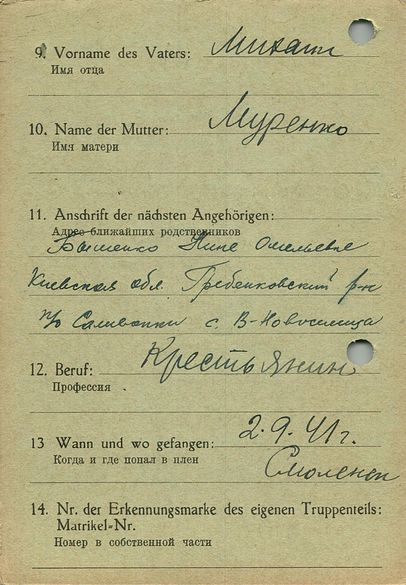 9. Vorname des Vaters: Михаил
Имя отца
10. Name der Mutter: Муренко
Имя матери
11. Anschrift der nächsten Angehörigen:
Адрес ближайших родственников
Бышенко Нине Омельевне
Киевская обл. Гребенковский р-н
п/о Саливонки с. В-Новоселица
12. Beruf: Крестьянин
Профессия
13 Wann und wo gefangen: 2.9.41г.
Когда и где попал в плен
Смоленск
14. Nr. der Erkennungsmarke des eigenen Truppenteils:
Matrikel-Nr.
Номер в собственной части